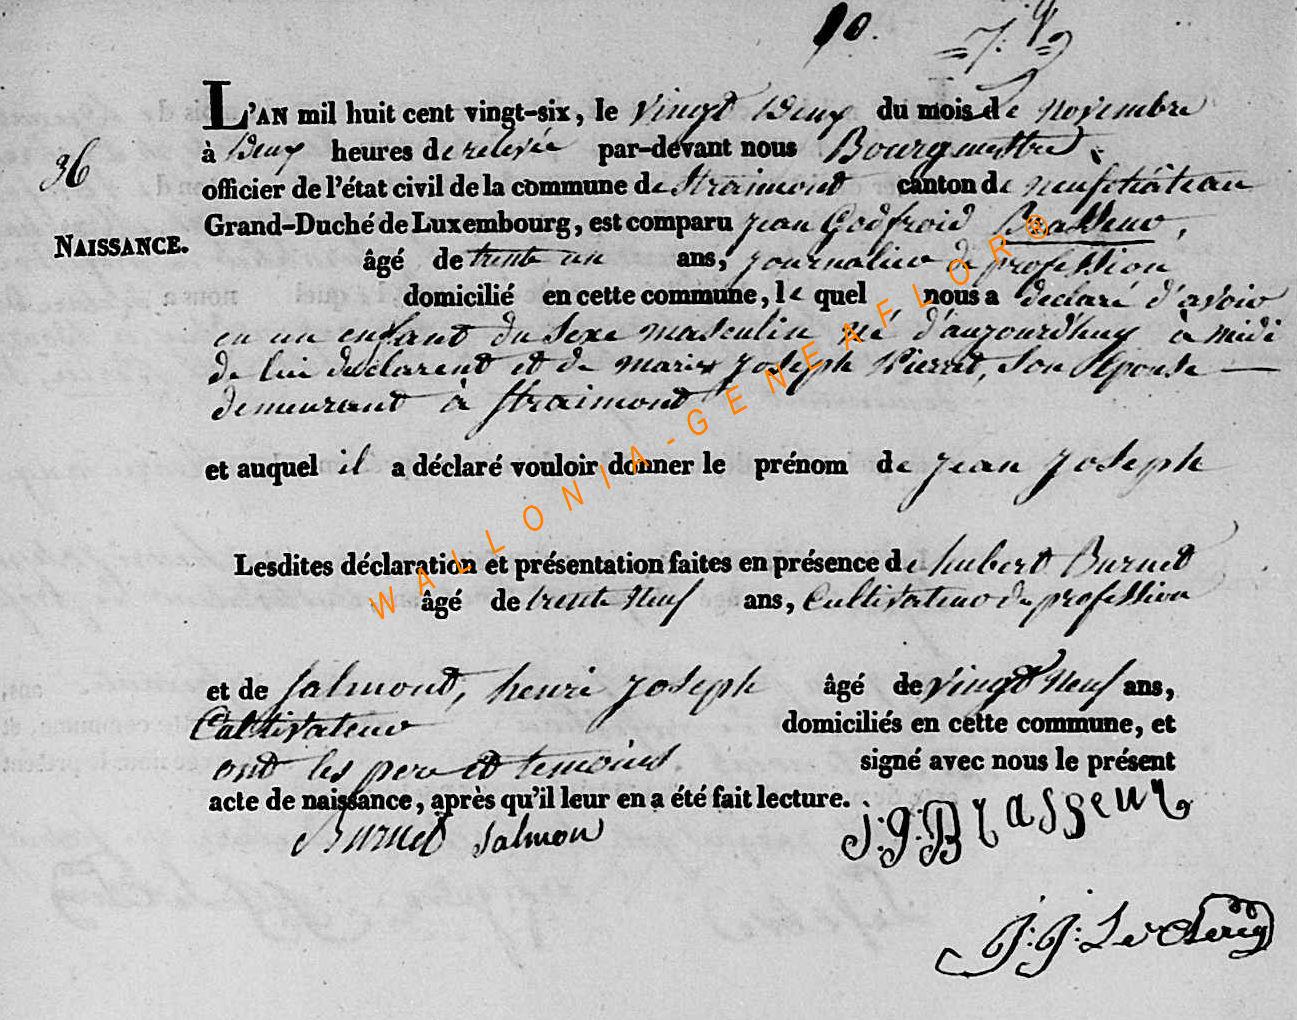 10.
36
NAISSANCE.
L'AN mil huit cent vingt-six, le vingt deux du mois de novembre
à deux heures de relevée par-devant nous Bourgmestre
officier de l'état civil de la commune de Straimont canton de neufchâteau
Grand-Duché de Luxembourg, est comparu jean Godfroid Brasseur,
âgé de trente un ans, journalier de profession
domicilié en cette commune, le quel nous a declaré d'avoir
eu un enfant du sexe masculin né d'aujourd'huy à midi
de lui declarent et de marie joseph Pierret, son Epouse
demeurant à straimont
et auquel il a déclaré vouloir donner le prénom de jean joseph
Lesdites déclaration et présentation faites en présence de hubert Burnet
âgé de trente neuf ans, Cultivateur de profession
et de Salmont, henri joseph âgé de vingt neuf ans,
Cultivateur domiciliés en cette commune, et
ont les pere et temoins signé avec nous le présent
acte de naissance, après qu'il leur en a été fait lecture.
Burnet Salmon J:G:Brasseur
J:J:Le Clercq
WALLONIA-GENEAFLOR®